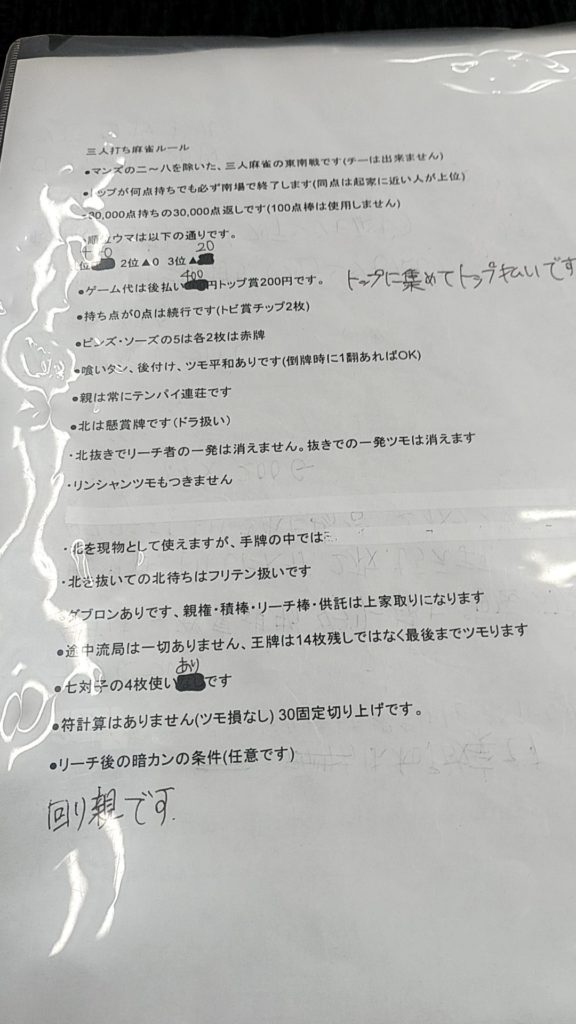 三人打ち麻雀ルール
●マンズの二～八を除いた、三人麻雀の東南戦です(チーは出来ません)
トップが何点持ちでも必ず南場で終了します(同点は起家に近い人が上位)
30,000点持ちの30,000点返しです(100点棒は使用しません)
順位ウマは以下の通りです。
20
位 2位▲0 3位▲
400
●ゲーム代は後払い円トップ賞200円です。 トップに集めてトップ払いです
●持ち点が0点は続行です(トビ賞チップ2枚)
●ピンズ・ソーズの5は各2枚は赤牌
●喰いタン、後付け、ツモ平和ありです(倒牌時に1翻あればOK)
●親は常にテンパイ連荘です
●北は懸賞牌です(ドラ扱い)
・北抜きでリーチ者の一発は消えません。抜きでの一発ツモは消えます
・リンシャンツモもつきません
・北を現物として使えますが、手牌の中では
・北を抜いての北待ちはフリテン扱いです
ダブロンありです、親権・積棒・リーチ棒・供託は上家取りになります
●途中流局は一切ありません、王牌は14枚残しではなく最後までツモります
あり
●七対子の4枚使いです
●符計算はありません(ツモ損なし) 30固定切り上げです。
●リーチ後の暗カンの条件(任意です)
回り親です.